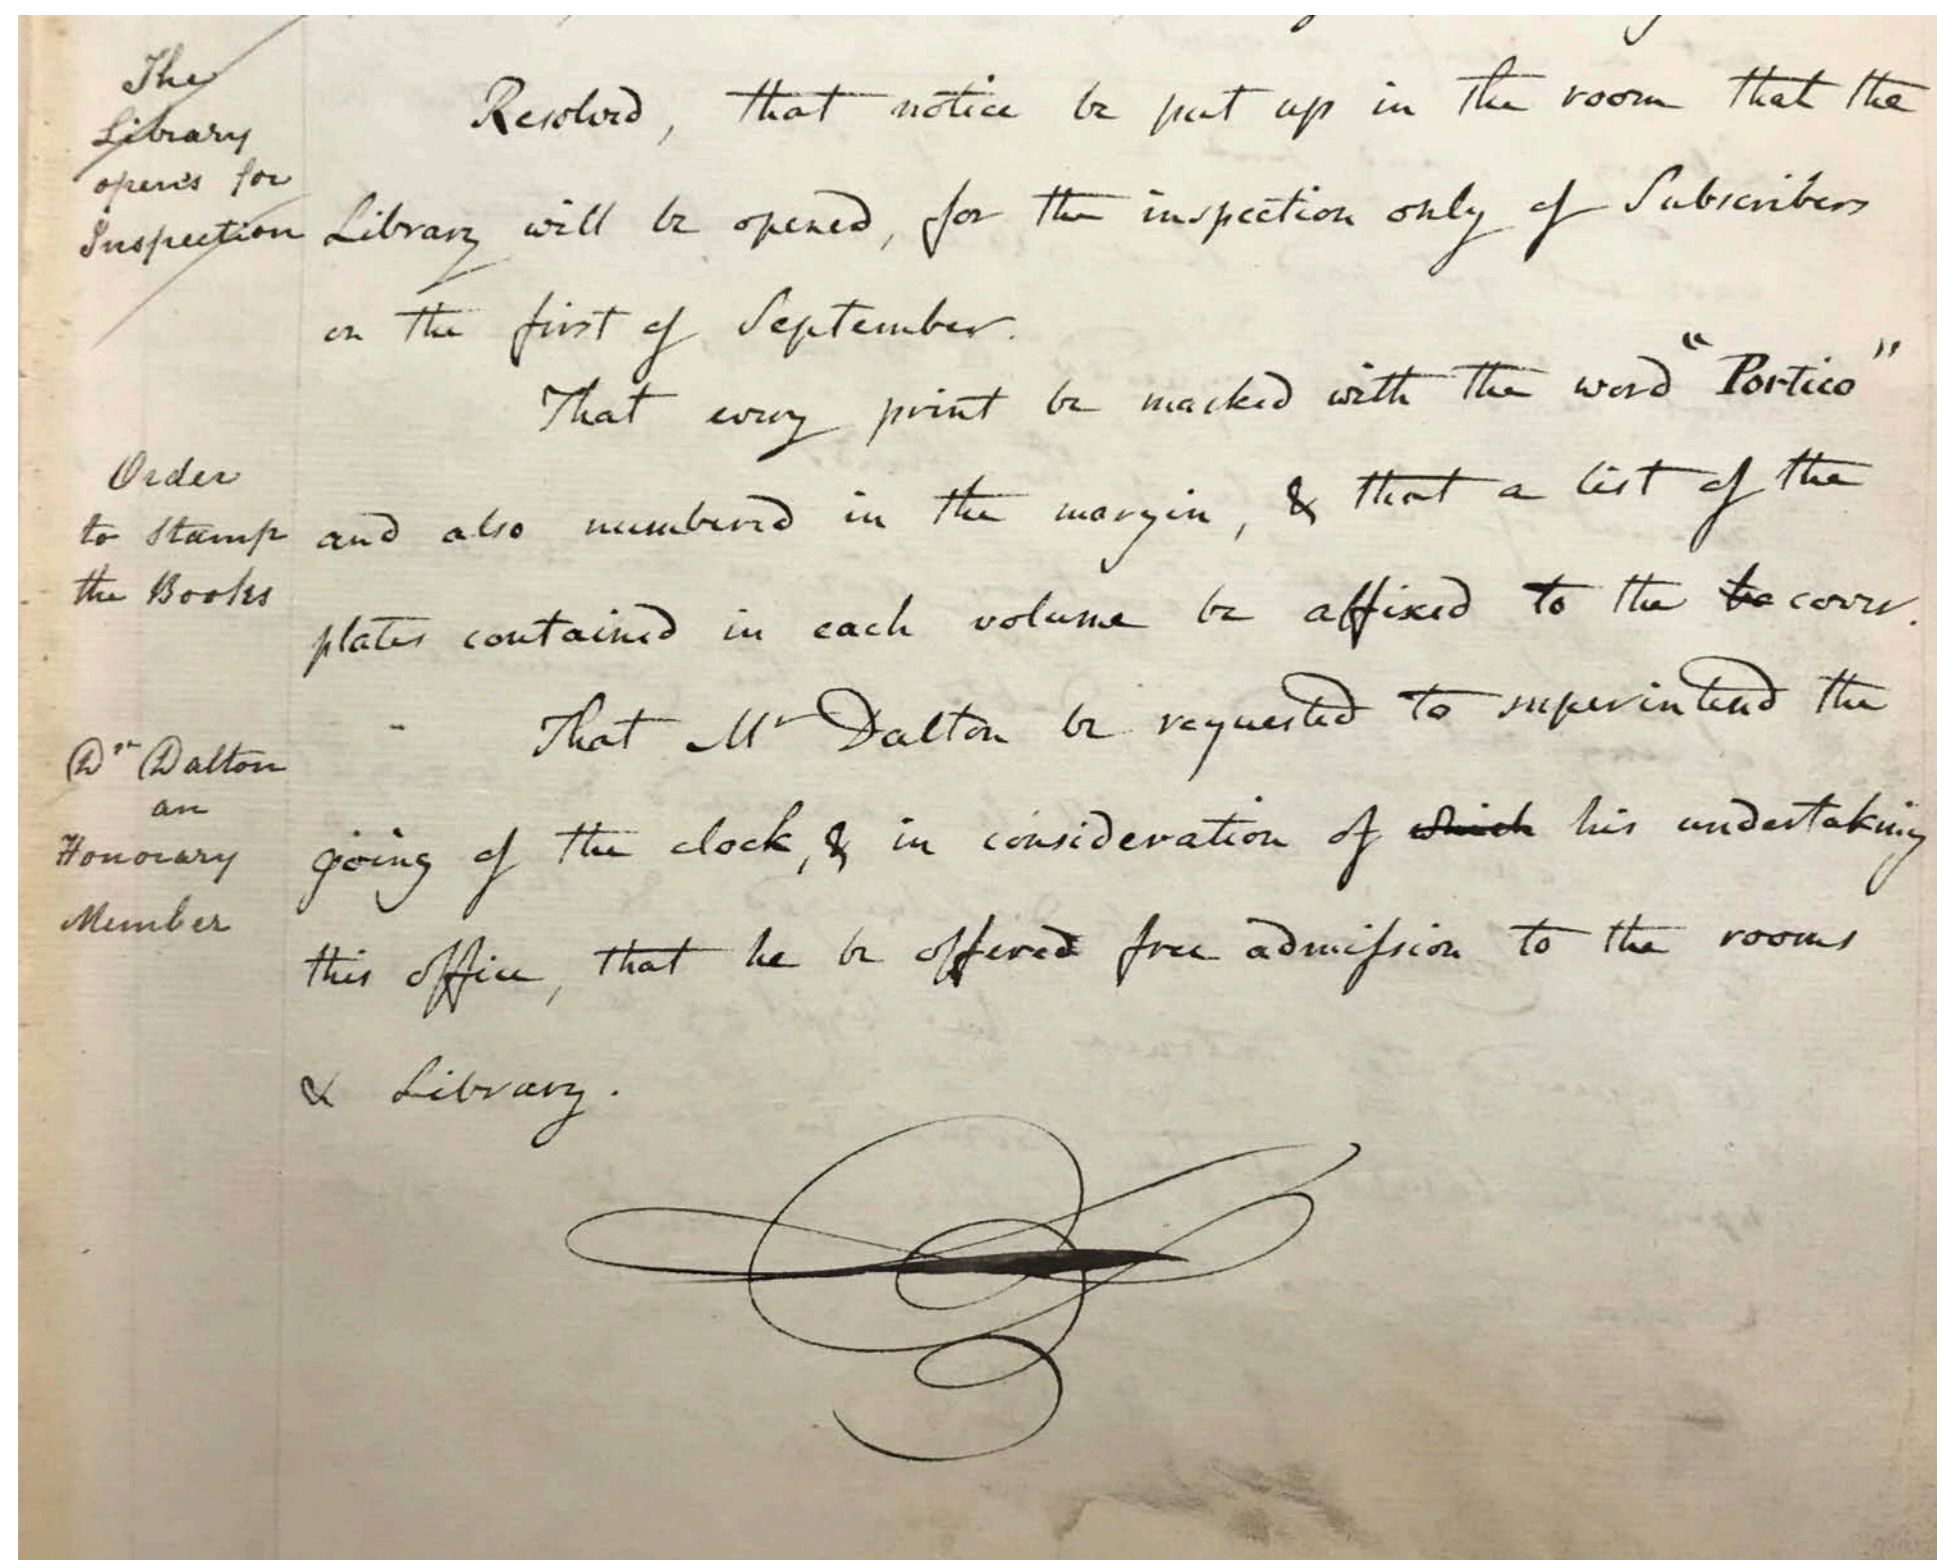 The
Library
opens for
Inspection
Resolved, that notice be put up in the room that the
Library will be opened, for the inspection only of Subscribers
on the first of September.
That every print be marked with the word "Portico"
Order
to Stamp
the Books
and also numbered in the margin, & that a list of the
plates contained in each volume be affixed to the be cover.
Dr Dalton
an
Honorary
Member
That Mr Dalton be requested to superintend the
going of the clock, & in consideration of which his undertaking
this office, that he be offered free admission to the rooms
& Library.